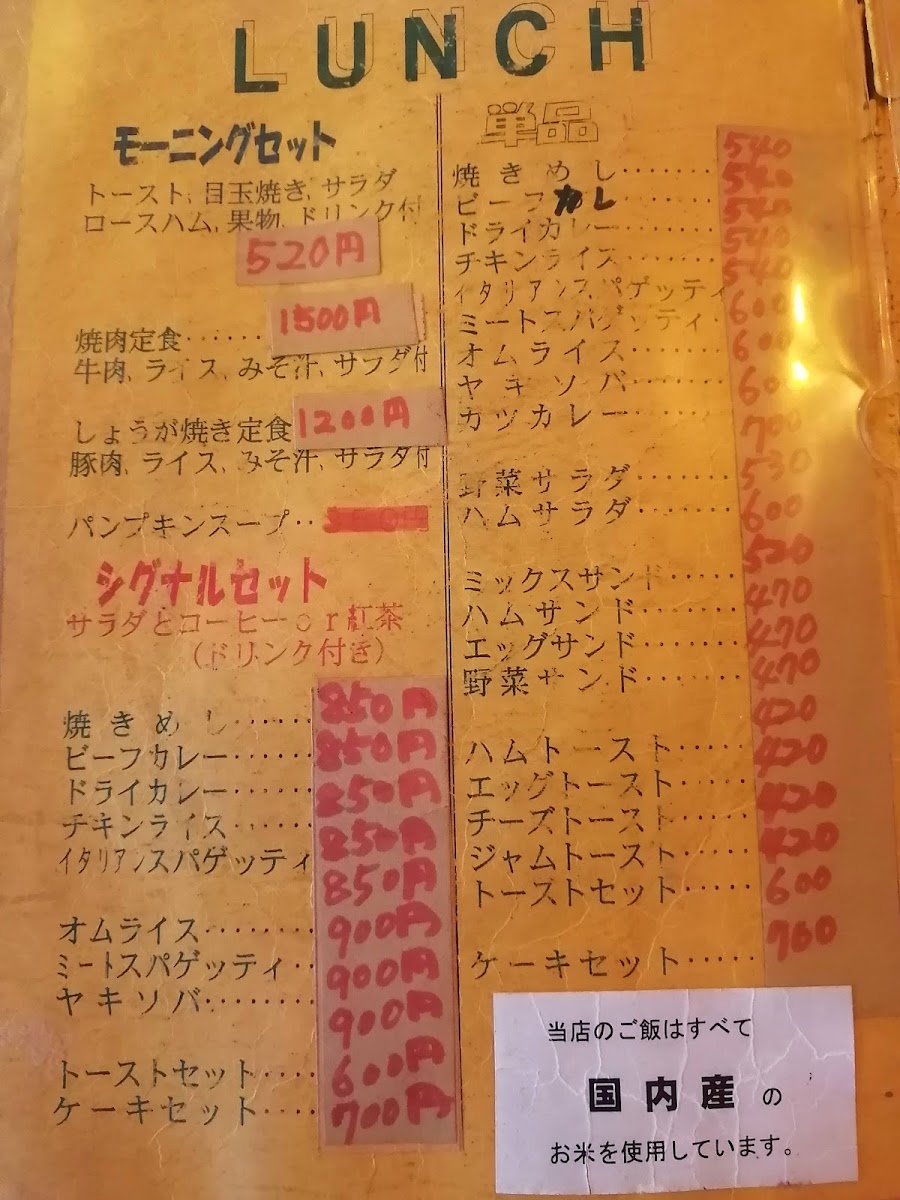 LUNCH
モーニングセット
トースト, 目玉焼き, サラダ
ロースハム, 果物, ドリンク付
520円
焼肉定食······1500円
牛肉, ライス, みそ汁, サラダ付
しょうが焼き定食 1200円
豚肉, ライス, みそ汁, サラダ付
パンプキンスープ··
シグナルセット
サラダとコーヒーor紅茶
(ドリンク付き)
焼きめし······850円
ビーフカレー······850円
ドライカレー······850円
チキンライス······850円
イタリアンスパゲッティ 850円
オムライス········900円
ミートスパゲッティ··900円
ヤキソバ········900円
トーストセット····600円
ケーキセット····700円
単品
焼きめし········540
ビーフカレ·······540
ドライカレー······540
チキンライス······540
イタリアンスパゲッティ 540
ミートスパゲッティ·600
オムライス·······600
ヤキソバ········600
カツカレー·······700
野菜サラダ·······530
ハムサラダ·······600
ミックスサンド·····520
ハムサンド·······470
エッグサンド······470
野菜サンド·······470
ハムトースト······420
エッグトースト·····420
チーズトースト·····420
ジャムトースト·····420
トーストセット·····600
ケーキセット·····700
当店のご飯はすべて
国内産の
お米を使用しています。